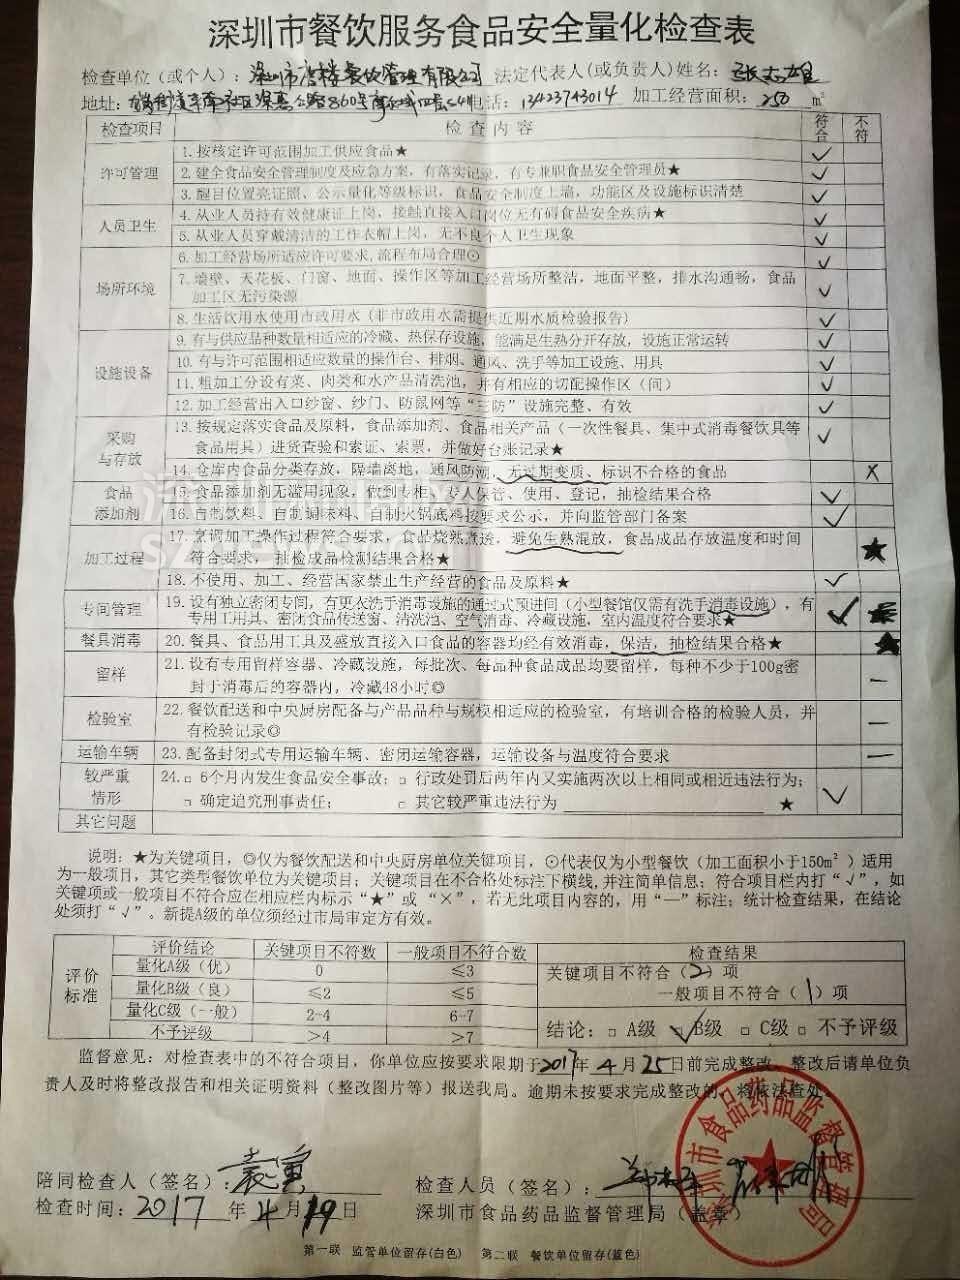 深圳市餐饮服务食品安全量化检查表
检查单位（或个人）：深圳市唐楼餐饮管理有限公司 法定代表人（或负责人）姓名：张
地址：社区深惠公路860号 四层 电话：13423743014 加工经营面积：250 m²
检查项目 检查内容 符合 不符
许可管理 1.按核定许可范围加工供应食品★ ✓
2.建全食品安全管理制度及应急方案，有落实记录，有专兼职食品安全管理员★ ✓
3.醒目位置亮证照、公示量化等级标识，食品安全制度上墙，功能区及设施标识清楚 ✓
人员卫生 4.从业人员持有效健康证上岗，接触直接入口岗位无有碍食品安全疾病★ ✓
5.从业人员穿戴清洁的工作衣帽上岗，无不良个人卫生现象 ✓
场所环境 6.加工经营场所适应许可要求,流程布局合理⊙ ✓
7.墙壁、天花板、门窗、地面、操作区等加工经营场所整洁，地面平整，排水沟通畅，食品
加工区无污染源 ✓
8.生活饮用水使用市政用水（非市政用水需提供近期水质检验报告） ✓
设施设备 9.有与供应品种数量相适应的冷藏、热保存设施，能满足生熟分开存放，设施正常运转 ✓
10.有与许可范围相适应数量的操作台、排烟、通风、洗手等加工设施、用具 ✓
11.粗加工分设有菜、肉类和水产品清洗池，并有相应的切配操作区（间） ✓
12.加工经营出入口纱窗、纱门、防鼠网等“三防”设施完整、有效 ✓
采购与存放 13.按规定落实食品及原料，食品添加剂、食品相关产品（一次性餐具、集中式消毒餐饮具等
食品用具）进货查验和索证、索票，并做好台账记录★ ✓
14.仓库内食品分类存放，隔墙离地，通风防潮，无过期变质、标识不合格的食品 X
食品添加剂 15.食品添加剂无滥用现象，做到专柜、专人保管、使用、登记，抽检结果合格 ✓
16.自制饮料、自制调味料、自制火锅底料按要求公示，并向监管部门备案 ✓
加工过程 17.烹调加工操作过程符合要求，食品烧熟煮透，避免生熟混放，食品成品存放温度和时间
符合要求，抽检成品检测结果合格★ ★
18.不使用、加工、经营国家禁止生产经营的食品及原料★ ✓
专间管理 19.设有独立密闭专间，有更衣洗手消毒设施的通过式预进间（小型餐馆仅需有洗手消毒设施），有
专用工用具、密闭食品传送窗、清洗池、空气消毒、冷藏设施，室内温度符合要求★ ✓
餐具消毒 20.餐具、食品用工具及盛放直接入口食品的容器均经有效消毒，保洁，抽检结果合格★ ★
留样 21.设有专用留样容器、冷藏设施，每批次、每品种食品成品均要留样，每种不少于100g密
封于消毒后的容器内，冷藏48小时◎ —
检验室 22.餐饮配送和中央厨房配备与产品品种与规模相适应的检验室，有培训合格的检验人员，并
有检验记录◎ —
运输车辆 23.配备封闭式专用运输车辆、密闭运输容器，运输设备与温度符合要求 —
较严重情形 24.□ 6个月内发生食品安全事故；□ 行政处罚后两年内又实施两次以上相同或相近违法行为；
□ 确定追究刑事责任； □ 其它较严重违法行为 ★ ✓
其它问题
说明：★为关键项目，◎仅为餐饮配送和中央厨房单位关键项目，⊙代表仅为小型餐饮（加工面积小于150m²）适用
为一般项目，其它类型餐饮单位为关键项目；关键项目在不合格处标注下横线,并注简单信息；符合项目栏内打“√”，如
关键项或一般项目不符合应在相应栏内标示“★”或“×”，若无此项目内容的，用“—”标注；统计检查结果，在结论
处须打“√”。新提A级的单位须经过市局审定方有效。
评价标准 评价结论 关键项目不符数 一般项目不符合数 检查结果
量化A级（优） 0 ≤3 关键项目不符合（2）项
量化B级（良） ≤2 ≤5 一般项目不符合（1）项
量化C级（一般） 2-4 6-7
不予评级 >4 >7 结论：□ A级 ✓B级 □ C级 □ 不予评级
监督意见：对检查表中的不符合项目，你单位应按要求限期于2017年4月25日前完成整改。整改后请单位负
责人及时将整改报告和相关证明资料（整改图片等）报送我局。逾期未按要求完成整改的，将依法查处。
陪同检查人（签名）：袁 检查人员（签名）：
检查时间：2017年4月19日 深圳市食品药品监督管理局（盖章）
深圳市食品药品监督管理局
第一联 监管单位留存(白色) 第二联 餐饮单位留存(蓝色)